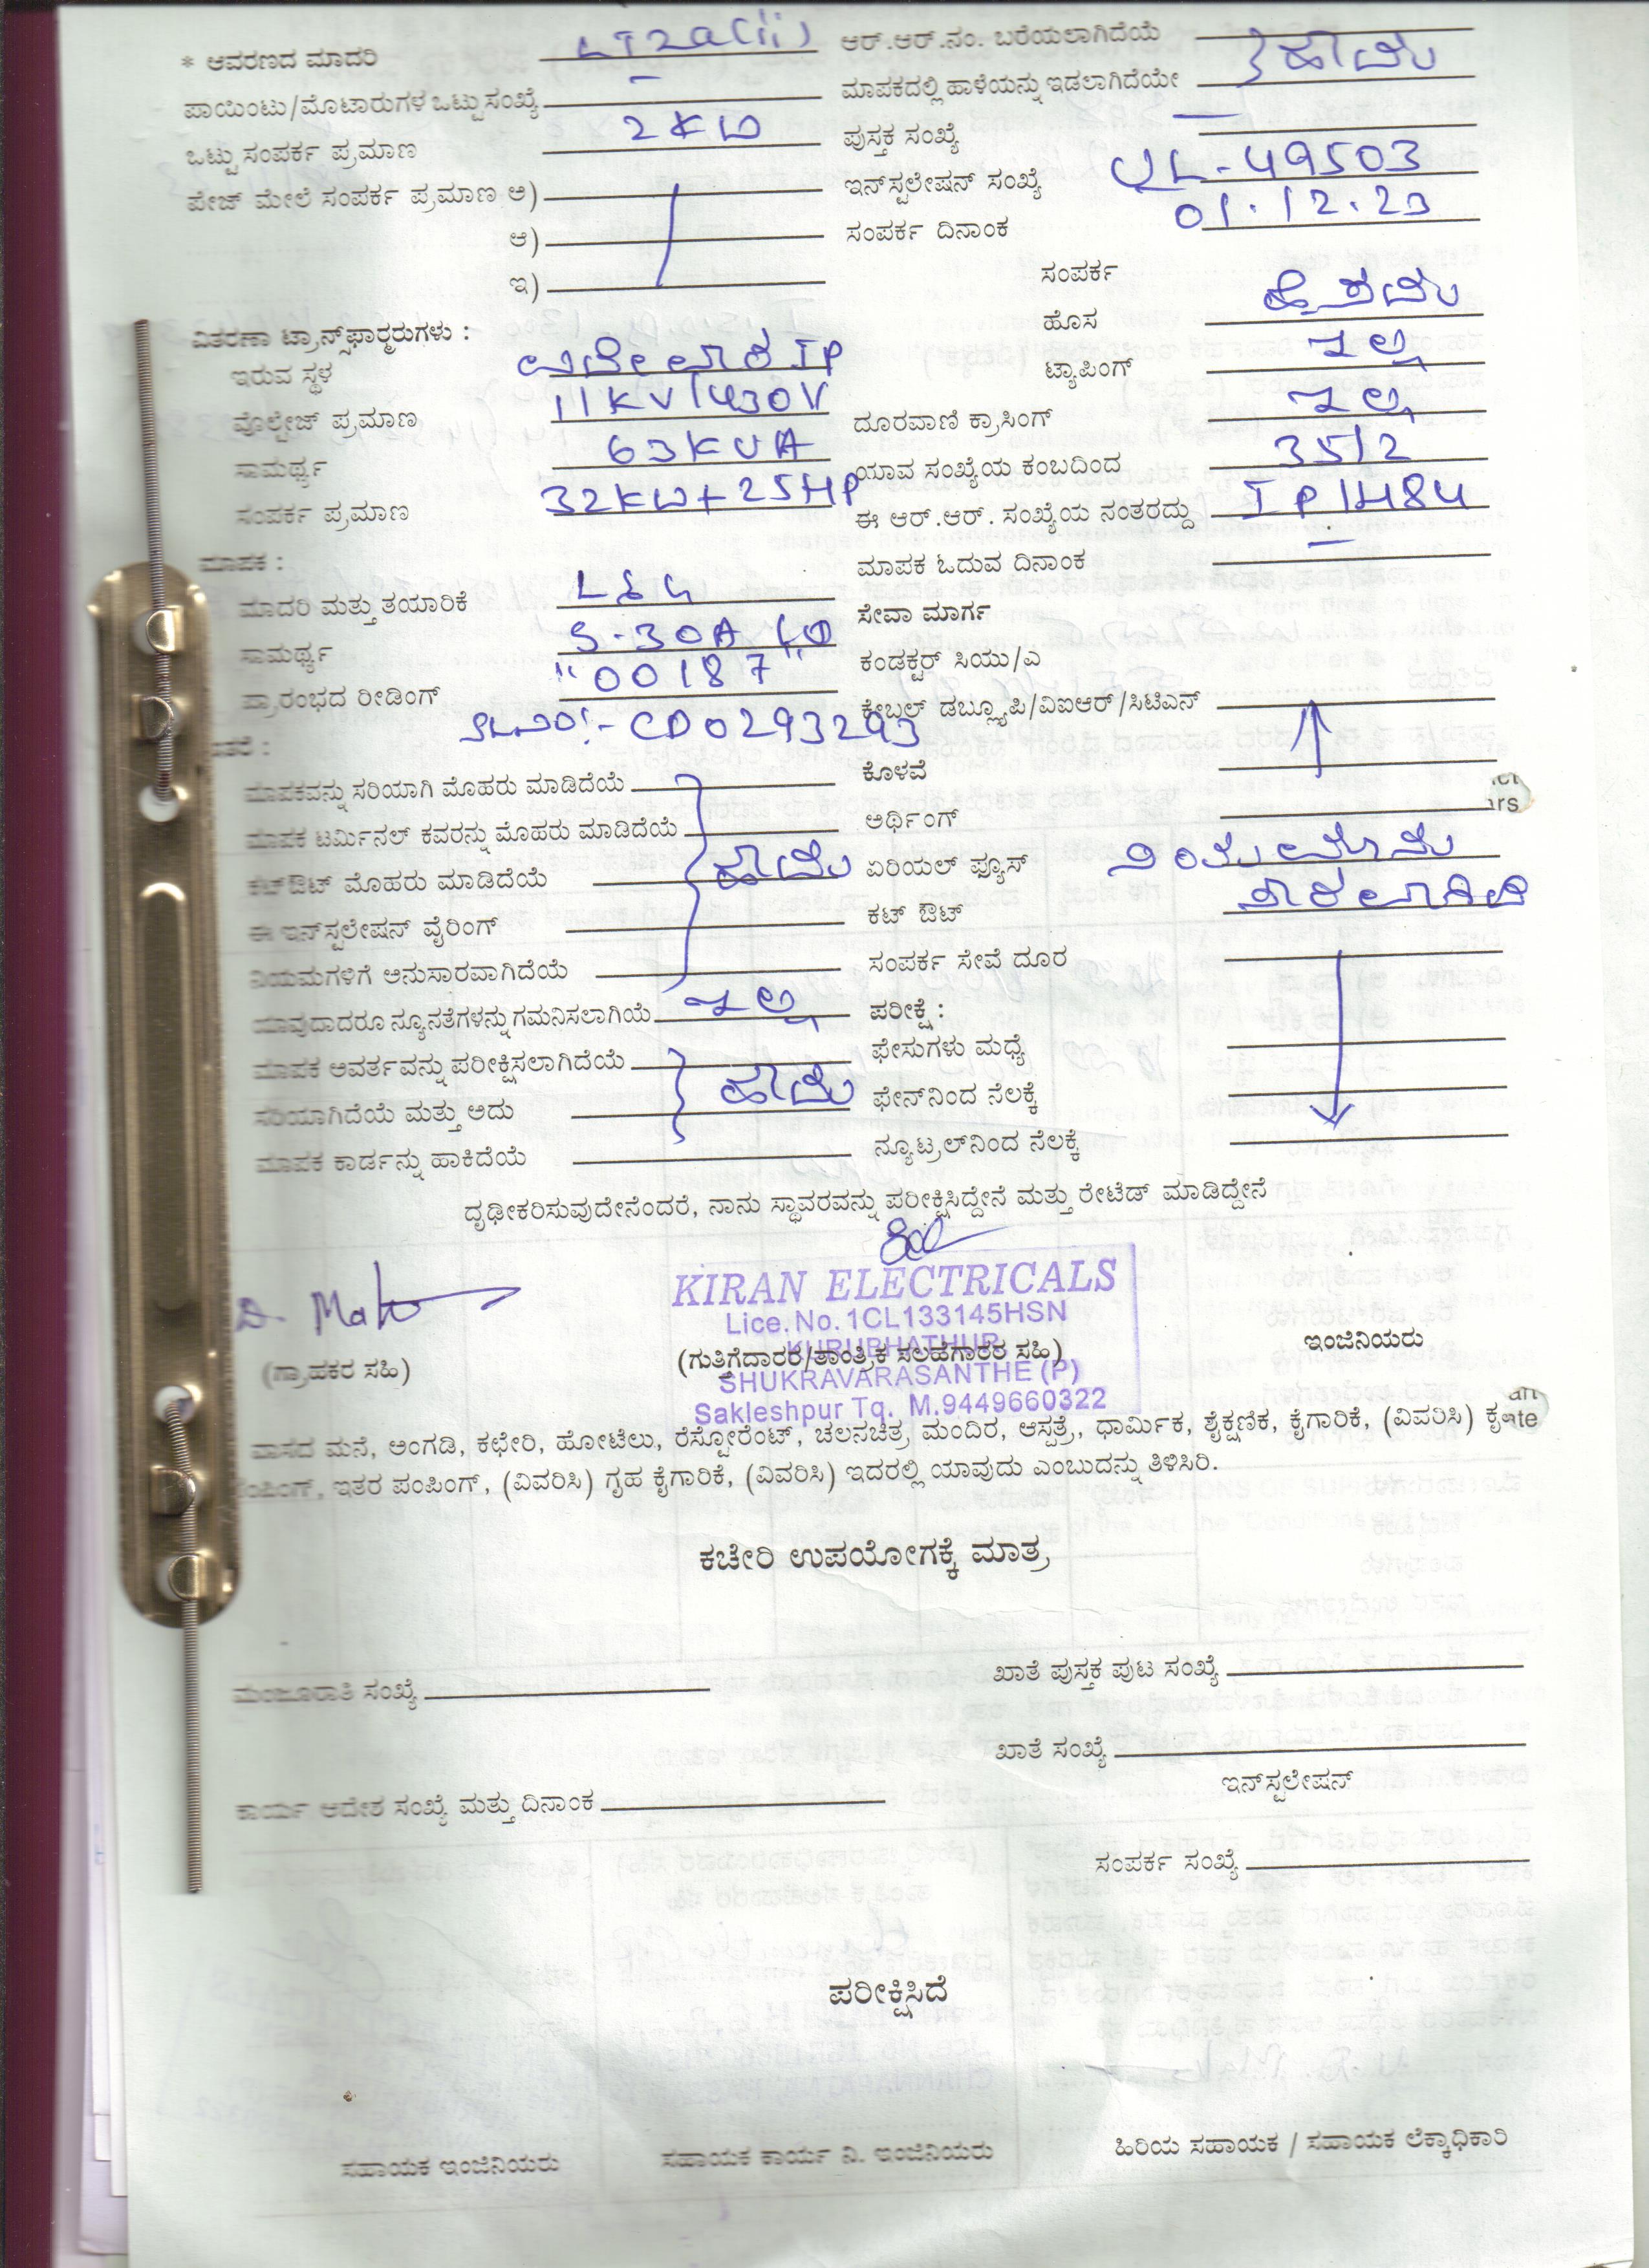 * ಆವರಣದ ಮಾದರಿ LT2a(ii) ಆರ್.ಆರ್.ನಂ. ಬರೆಯಲಾಗಿದೆಯೆ
ಪಾಯಿಂಟು/ಮೊಟಾರುಗಳ ಒಟ್ಟು ಸಂಖ್ಯೆ ಮಾಪಕದಲ್ಲಿ ಹಾಳೆಯನ್ನು ಇಡಲಾಗಿದೆಯೇ ಹೌದು
ಒಟ್ಟು ಸಂಪರ್ಕ ಪ್ರಮಾಣ 2KW ಪುಸ್ತಕ ಸಂಖ್ಯೆ —
ಪೇಜ್ ಮೇಲೆ ಸಂಪರ್ಕ ಪ್ರಮಾಣ ಅ) ಇನ್‌ಸ್ಟಲೇಷನ್ ಸಂಖ್ಯೆ L-49503
ಆ) ಸಂಪರ್ಕ ದಿನಾಂಕ 01.12.23
ಇ) ಸಂಪರ್ಕ
ಹೊಸ
ವಿತರಣಾ ಟ್ರಾನ್ಸ್‌ಫಾರ್ಮರುಗಳು :
ಇರುವ ಸ್ಥಳ IP ಟ್ಯಾಪಿಂಗ್ ಇಲ್ಲ
ವೊಲ್ಟೇಜ್ ಪ್ರಮಾಣ 11KV/430V ದೂರವಾಣಿ ಕ್ರಾಸಿಂಗ್ ಇಲ್ಲ
ಸಾಮರ್ಥ್ಯ 63KVA ಯಾವ ಸಂಖ್ಯೆಯ ಕಂಬದಿಂದ 35/2
ಸಂಪರ್ಕ ಪ್ರಮಾಣ 32KW+25HP ಈ ಆರ್.ಆರ್. ಸಂಖ್ಯೆಯ ನಂತರದ್ದು
ಮಾಪಕ : ಮಾಪಕ ಓದುವ ದಿನಾಂಕ —
ಮಾದರಿ ಮತ್ತು ತಯಾರಿಕೆ L&G ಸೇವಾ ಮಾರ್ಗ
ಸಾಮರ್ಥ್ಯ 5-30A ಕಂಡಕ್ಟರ್ ಸಿಯು/ಎ
ಪ್ರಾರಂಭದ ರೀಡಿಂಗ್ "00187" ಕೇಬಲ್ ಡಬ್ಲ್ಯೂಪಿ/ವಿಐಆರ್/ಸಿಟಿಎನ್
SLNO:- CD0293293
ಇತರೆ : ಕೊಳವೆ
ಮಾಪಕವನ್ನು ಸರಿಯಾಗಿ ಮೊಹರು ಮಾಡಿದೆಯೆ ಅರ್ಥಿಂಗ್
ಮಾಪಕ ಟರ್ಮಿನಲ್ ಕವರನ್ನು ಮೊಹರು ಮಾಡಿದೆಯೆ ಏರಿಯಲ್ ಫ್ಯೂಸ್ ನಿಯಮಾನು
ಕಟ್‌ಔಟ್ ಮೊಹರು ಮಾಡಿದೆಯೆ ಹೌದು ಕಟ್ ಔಟ್ ಸಾರವಾಗಿದೆ
ಈ ಇನ್‌ಸ್ಟಲೇಷನ್ ವೈರಿಂಗ್
ನಿಯಮಗಳಿಗೆ ಅನುಸಾರವಾಗಿದೆಯೆ ಸಂಪರ್ಕ ಸೇವೆ ದೂರ
ಯಾವುದಾದರೂ ನ್ಯೂನತೆಗಳನ್ನು ಗಮನಿಸಲಾಗಿಯೆ ಇಲ್ಲ ಪರೀಕ್ಷೆ :
ಮಾಪಕ ಆವರ್ತವನ್ನು ಪರೀಕ್ಷಿಸಲಾಗಿದೆಯೆ ಫೇಸುಗಳು ಮಧ್ಯೆ
ಸರಿಯಾಗಿದೆಯೆ ಮತ್ತು ಅದು ಹೌದು ಫೇಸ್‌ನಿಂದ ನೆಲಕ್ಕೆ
ಮಾಪಕ ಕಾರ್ಡನ್ನು ಹಾಕಿದೆಯೆ ನ್ಯೂಟ್ರಲ್‌ನಿಂದ ನೆಲಕ್ಕೆ
ದೃಢೀಕರಿಸುವುದೇನೆಂದರೆ, ನಾನು ಸ್ಥಾವರವನ್ನು ಪರೀಕ್ಷಿಸಿದ್ದೇನೆ ಮತ್ತು ರೇಟೆಡ್ ಮಾಡಿದ್ದೇನೆ
KIRAN ELECTRICALS
Lice.No.1CL133145HSN
KURUBHATHUR
(ಗ್ರಾಹಕರ ಸಹಿ) (ಗುತ್ತಿಗೆದಾರರ/ತಾಂತ್ರಿಕ ಸಲಹೆಗಾರರ ಸಹಿ) ಇಂಜಿನಿಯರು
SHUKRAVARASANTHE (P)
Sakleshpur Tq. M.9449660322
ವಾಸದ ಮನೆ, ಅಂಗಡಿ, ಕಛೇರಿ, ಹೋಟೆಲು, ರೆಸ್ಟೋರೆಂಟ್, ಚಲನಚಿತ್ರ ಮಂದಿರ, ಆಸ್ಪತ್ರೆ, ಧಾರ್ಮಿಕ, ಶೈಕ್ಷಣಿಕ, ಕೈಗಾರಿಕೆ, (ವಿವರಿಸಿ)
ಪಂಪಿಂಗ್, ಇತರ ಪಂಪಿಂಗ್, (ವಿವರಿಸಿ) ಗೃಹ ಕೈಗಾರಿಕೆ, (ವಿವರಿಸಿ) ಇದರಲ್ಲಿ ಯಾವುದು ಎಂಬುದನ್ನು ತಿಳಿಸಿರಿ.
ಕಚೇರಿ ಉಪಯೋಗಕ್ಕೆ ಮಾತ್ರ
ಮಂಜೂರಾತಿ ಸಂಖ್ಯೆ ಖಾತೆ ಪುಸ್ತಕ ಪುಟ ಸಂಖ್ಯೆ
ಖಾತೆ ಸಂಖ್ಯೆ
ಇನ್‌ಸ್ಟಲೇಷನ್
ಕಾರ್ಯ ಆದೇಶ ಸಂಖ್ಯೆ ಮತ್ತು ದಿನಾಂಕ
ಸಂಪರ್ಕ ಸಂಖ್ಯೆ
ಪರೀಕ್ಷಿಸಿದೆ
ಸಹಾಯಕ ಇಂಜಿನಿಯರು ಸಹಾಯಕ ಕಾರ್ಯ ನಿ. ಇಂಜಿನಿಯರು ಹಿರಿಯ ಸಹಾಯಕ / ಸಹಾಯಕ ಲೆಕ್ಕಾಧಿಕಾರಿ